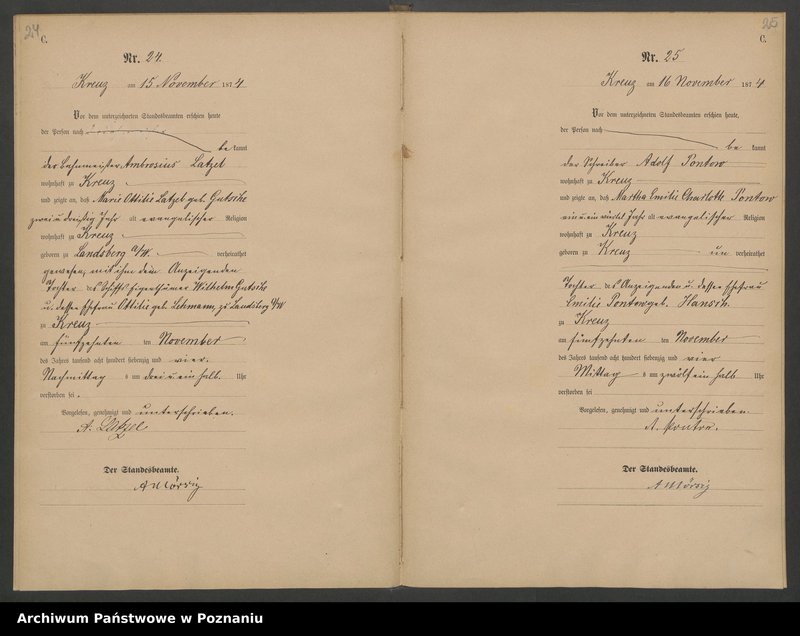 24
C.
Nr. 24.
Kreuz am 15 November 1874
Vor dem unterzeichneten Standesbeamten erschien heute
der Person nach
be kannt
der Bahnmeister Ambrosius Latzel
wohnhaft zu Kreuz
und zeigte an, daß Marie Ottilie Latzel geb. Gutsche
zwei u. dreißig Jahr alt evangelischer Religion
wohnhaft zu Kreuz
geboren zu Landsberg a/W. verheirathet
gewesen, mit ihm dem Anzeigenden
Tochter des Schiffseigenthümer Wilhelm Gutsche
u. dessen Ehefrau Ottilie geb. Lehmann, zu Landsberg a/W
zu Kreuz
am fünfzehnten ten November
des Jahres tausend acht hundert siebenzig und vier.
Nachmittag s um drei u. ein halb. Uhr
verstorben sei.
Vorgelesen, genehmigt und unterschrieben.
A. Latzel
Der Standesbeamte.
25
C.
Nr. 25
Kreuz am 16 November 1874
Vor dem unterzeichneten Standesbeamten erschien heute,
der Person nach
be kannt
der Schreiber Adolf Pontow
wohnhaft zu Kreuz
und zeigte an, daß Martha Emilie Charlotte Pontow
ein u. ein viertel Jahr alt evangelischen Religion
wohnhaft zu Kreuz
geboren zu Kreuz un verheirathet
Tochter des Anzeigenden u. dessen Ehefrau
Emilie Pontow geb.
zu Kreuz
am fünfzehnten ten November
des Jahres tausend acht hundert siebenzig und vier
Mittag s um zwölf ein halb Uhr
verstorben sei
Vorgelesen, genehmigt und unterschrieben
A. Pontow.
Der Standesbeamte.
Archiwum Państwowe w Poznaniu